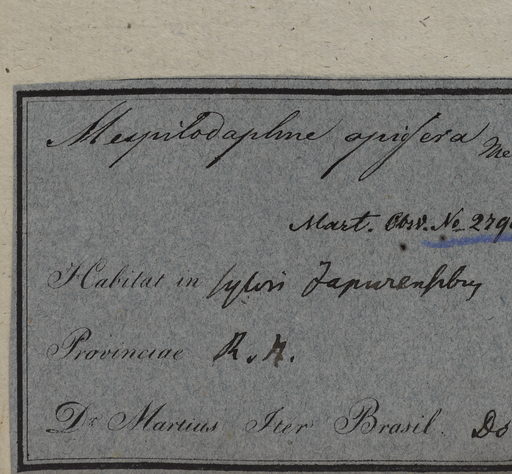 Mespilodaphne opifera Me
Mart. Obs. No 279
Habitat in sylvis Japurensibus
Provinciae R. N.
Dr Martius Iter Brasil. De